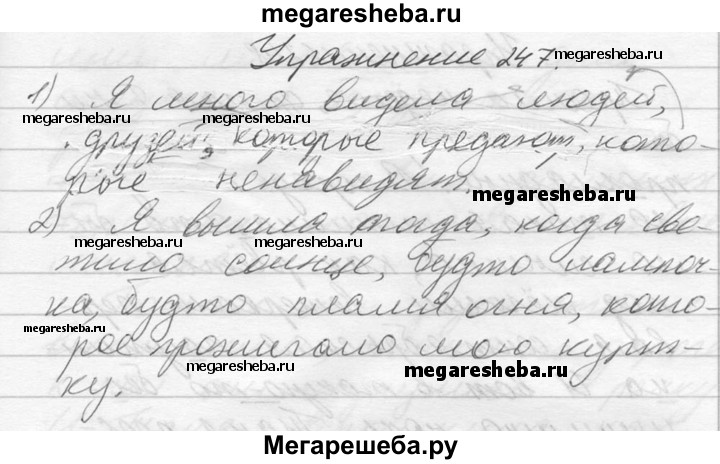 megaresheba.ru
Упражнение 247. megaresheba.ru
1) Я много видела людей,
megaresheba.ru megaresheba.ru
друзей, которые предают, кото-
рые ненавидят.
megaresheba.ru
2) Я вышла тогда, когда све-
megaresheba.ru megaresheba.ru
тило солнце, будто лампоч-
ка, будто пламя огня, кото-
megaresheba.ru
рое прожигало мою курт-
megaresheba.ru megaresheba.ru
ку.
Мегарешеба.ру